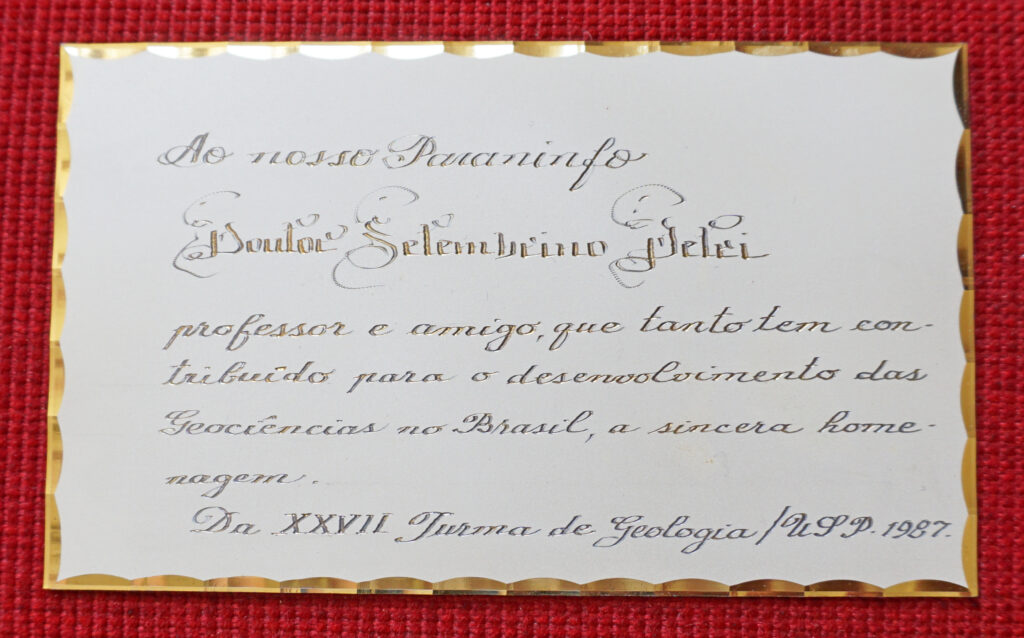 Ao nosso Paraninfo
Doutor Setembrino Petri
professor e amigo, que tanto tem con-
tribuído para o desenvolvimento das
Geociências no Brasil, a sincera home-
nagem.
Da XXVII Turma de Geologia/USP. 1987.